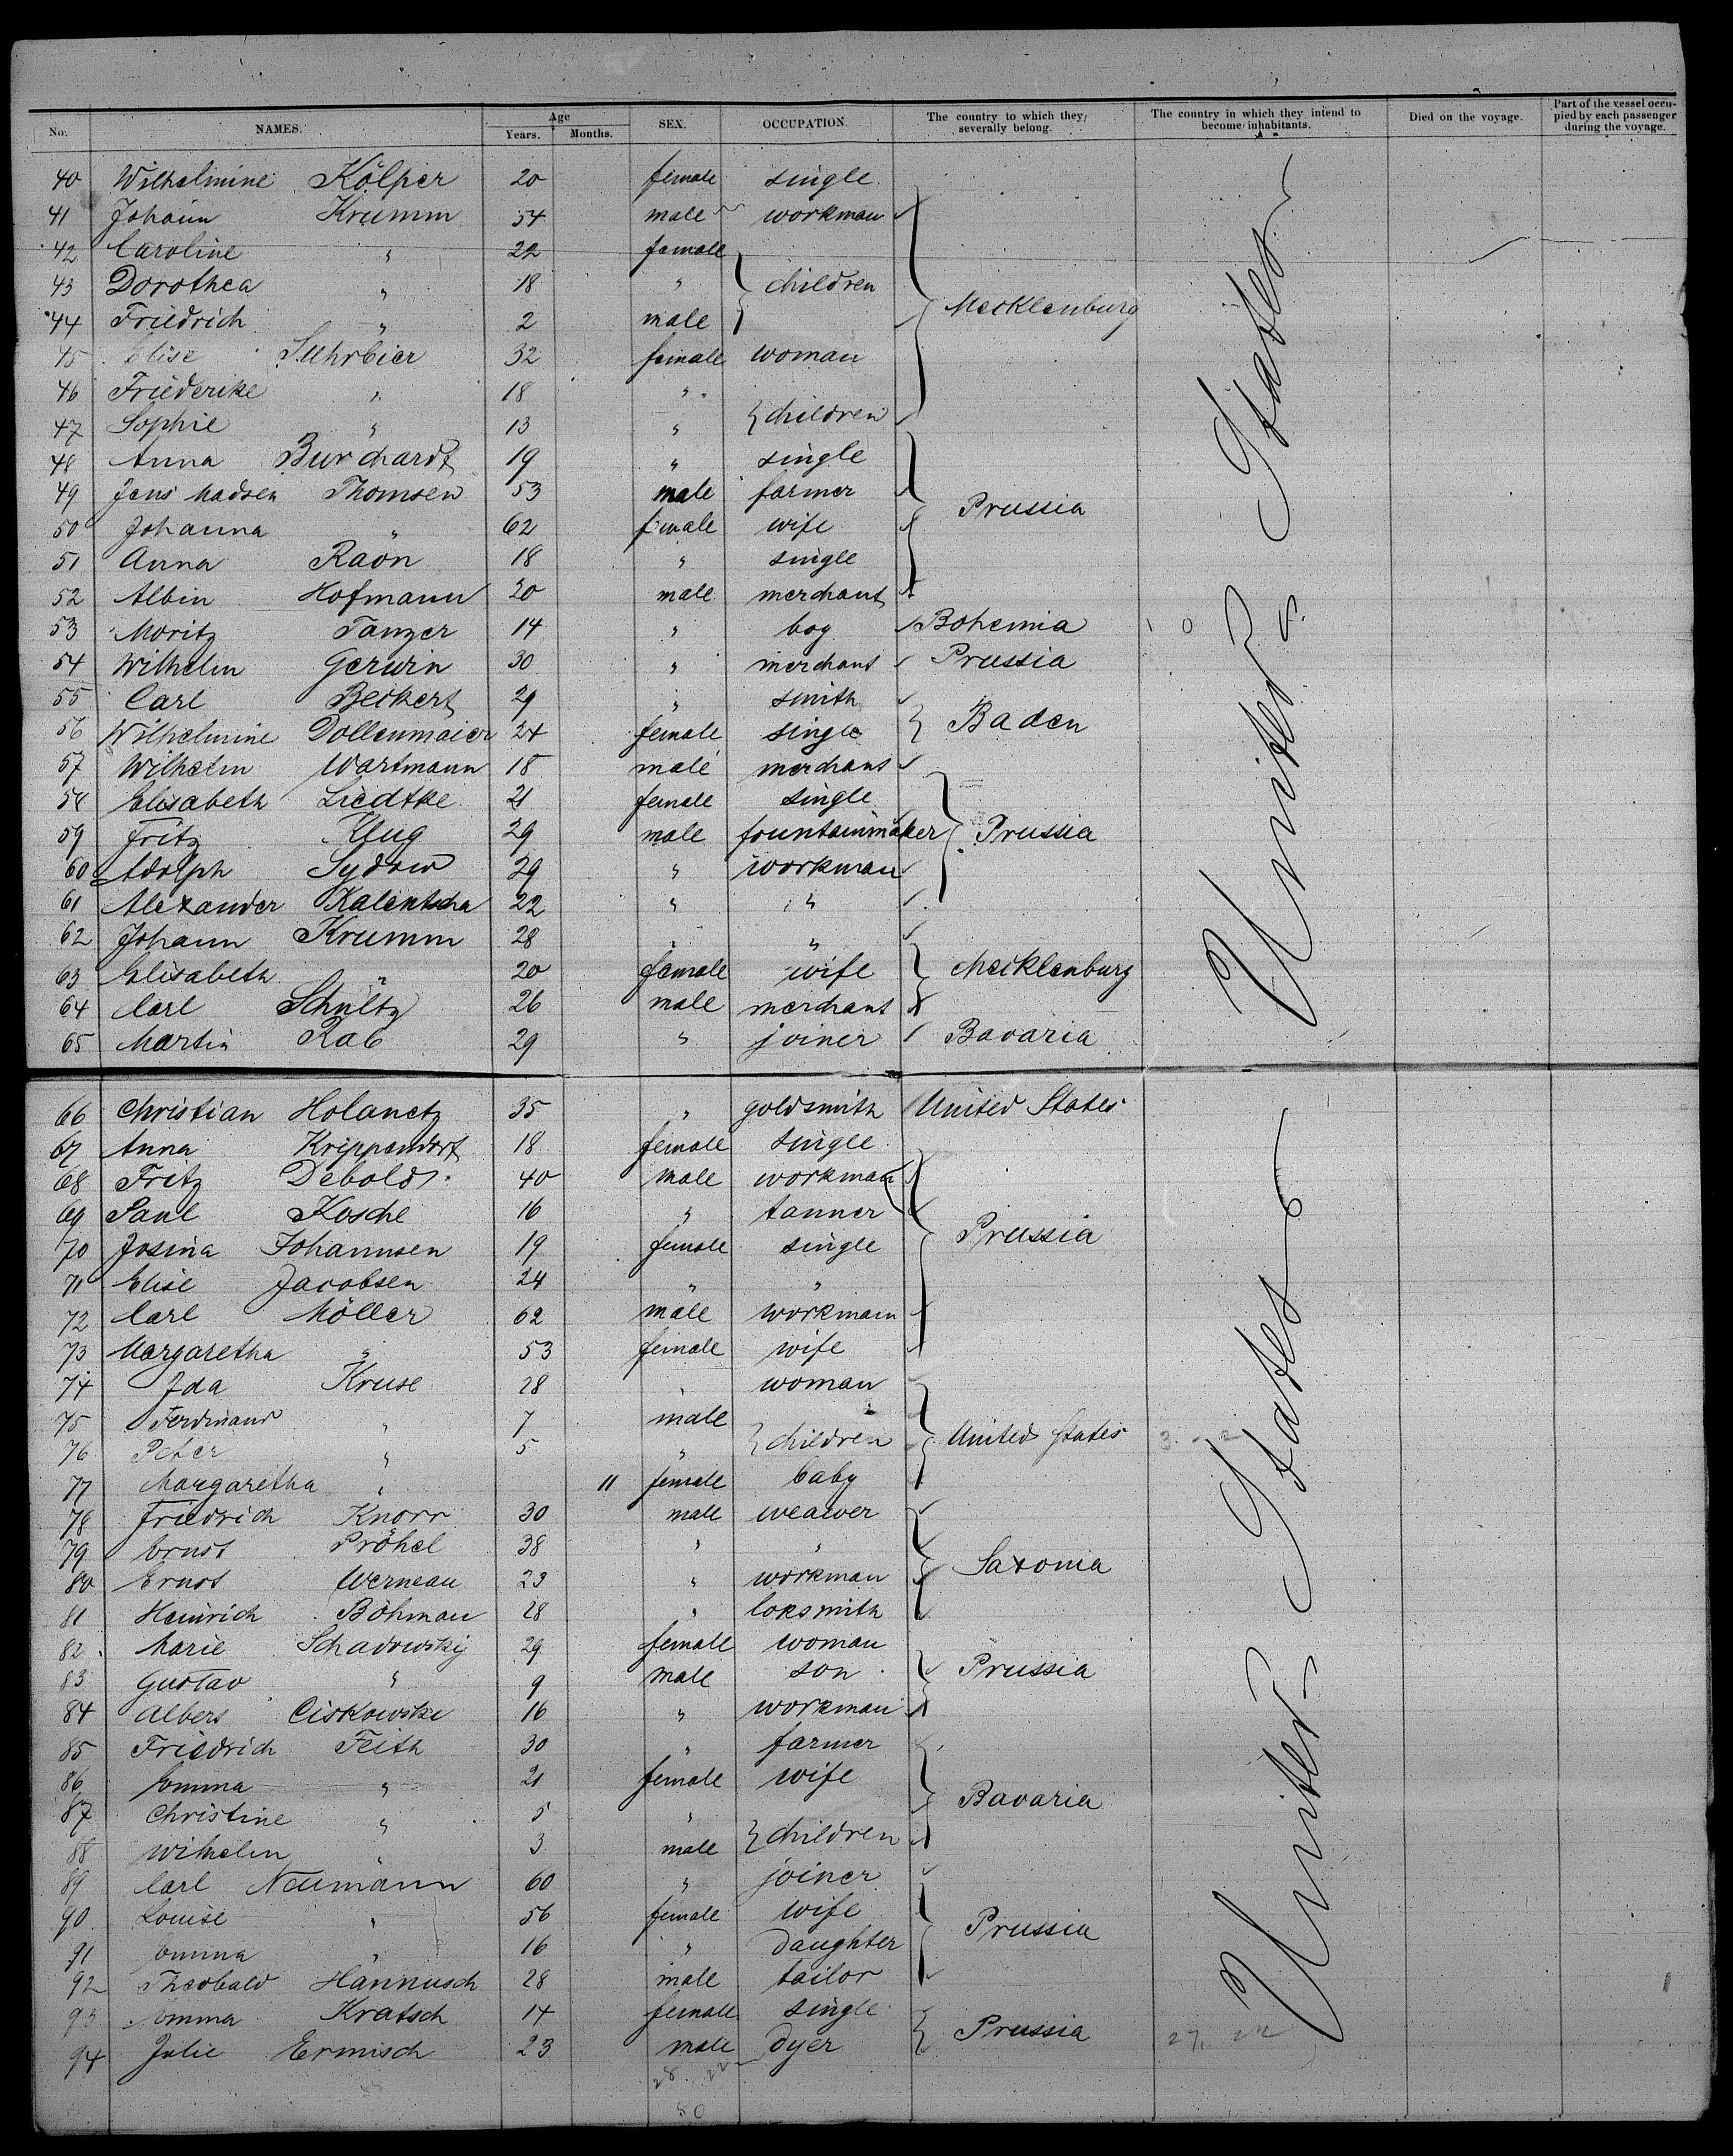 No. NAMES. Age Years. Months. SEX. OCCUPATION. The country to which they severally belong. The country in which they intend to become inhabitants. Died on the voyage. Part of the vessel occupied by each passenger during the voyage.
40 Wilhelmine Kölper 20 female single
41 Johann Krumm 54 male workman
42 Caroline " 22 female
43 Dorothea " 18 " children
44 Friedrich " 2 male Mecklenburg
45 Elise Suhrbier 32 female woman
46 Friederike " 18 "
47 Sophie " 13 " children
48 Anna Burchardt 19 " single
49 Jens Madsen Thomsen 53 male farmer Prussia
50 Johanna " 62 female wife
51 Anna Raon 18 " single
52 Albin Hofmann 20 male merchant
53 Moritz Tanzer 14 " boy Bohemia
54 Wilhelm Gerwin 30 " merchant Prussia
55 Carl Beikert 29 " smith
56 Wilhelmine Dollenmaier 24 female single Baden
57 Wilhelm Wartmann 18 male merchant
58 Elisabeth Liedtke 21 female single
59 Fritz Klug 29 male fountainmaker Prussia
60 Adolph Sydow 29 " workman
61 Alexander Kalentscha 22 " "
62 Johann Krumm 28 " "
63 Elisabeth " 20 female wife Mecklenburg
64 Carl Schultz 26 male merchant
65 Martin Rab 29 " joiner Bavaria
United States
66 Christian Holanetz 35 " goldsmith United States
67 Anna Krippendorf 18 female single
68 Fritz Debold 40 male workman
69 Paul Kosche 16 " tanner
70 Josina Johannsen 19 female single Prussia
71 Elise Jacobsen 24 " "
72 Carl Möller 62 male workmam
73 Margaretha " 53 female wife
74 Ida Kruse 28 " woman
75 Ferdinand " 7 male
76 Peter " 5 " children United States
77 Margaretha " 11 female baby
78 Friedrich Knorr 30 male weawer
79 Ernst Pröhel 38 " "
80 Ernst Werneau 23 " workman Saxonia
81 Heinrich Böhman 28 " loksmith
82 Marie Schadowsky 29 female woman
83 Gustav " 9 male son Prussia
84 Albert Ciskowski 16 " workman
85 Friedrich Feith 30 " farmer
86 Emma " 21 female wife
87 Christine " 5 " Bavaria
88 Wilhelm " 3 male children
89 Carl Neumann 60 " joiner
90 Louise " 56 female wife Prussia
91 Emma " 16 " daughter
92 Theobald Hannusch 28 male tailor
93 Emma Kratsch 14 female single
94 Julie Ermisch 23 male dyer Prussia
United States